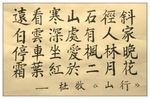 遠看寒山石徑斜
白雲深處有人家
停車坐愛楓林晚
霜葉紅於二月花
—杜牧《山行》